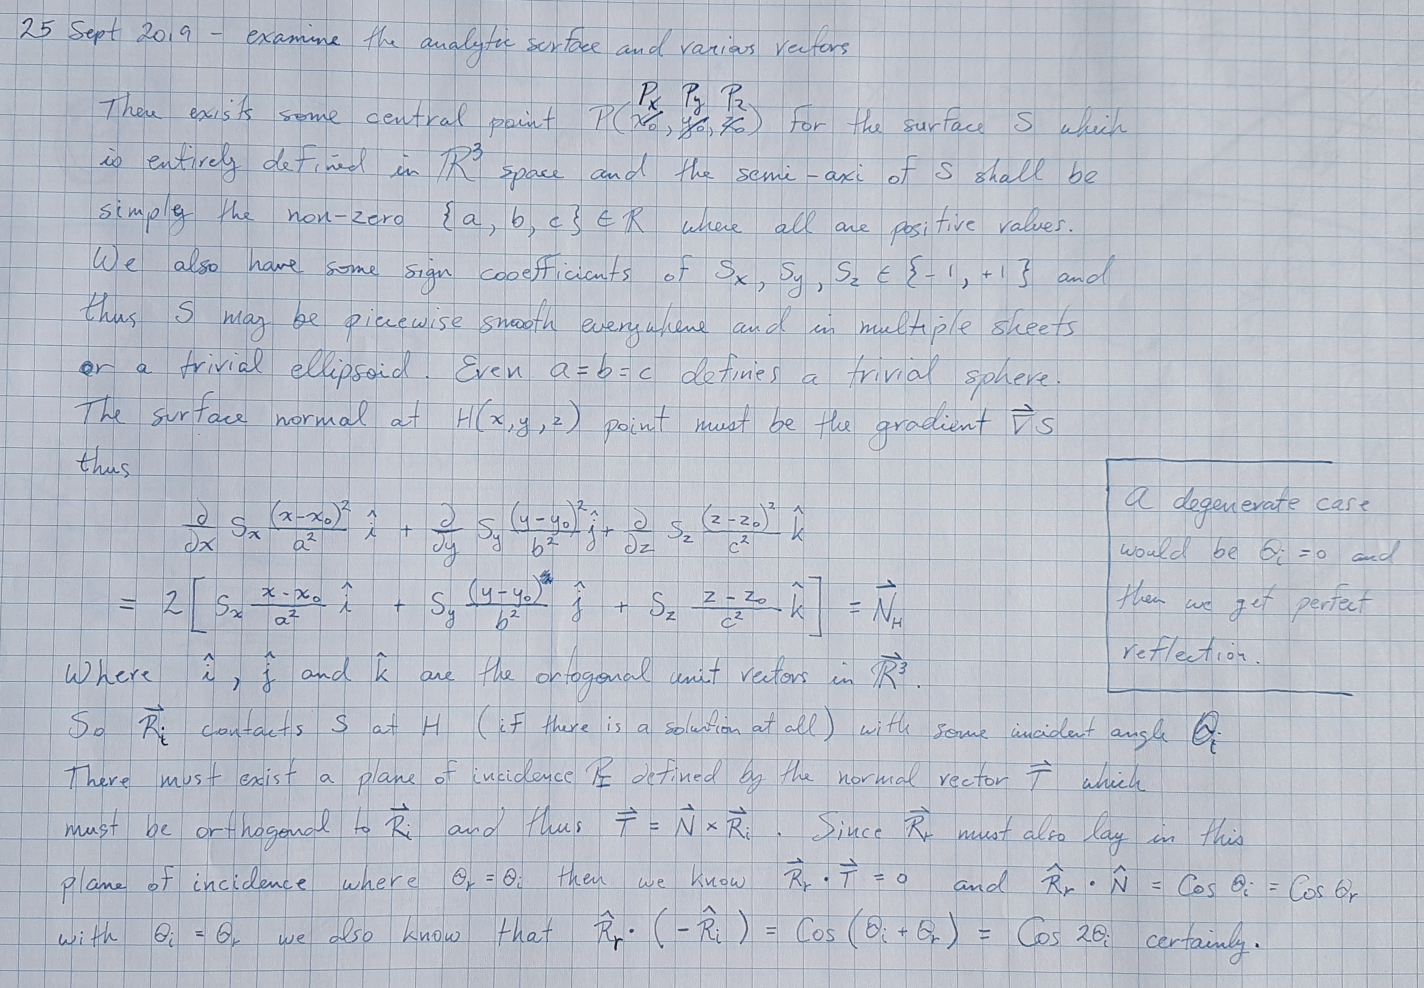 25 Sept 2019 - examine the analytic surface and various vectors
Px Py Pz
There exists some central point P(x0, y0, z0) for the surface S which
is entirely defined in ℝ³ space and the semi-axi of S shall be
simply the non-zero {a, b, c} ∈ ℝ where all are positive values.
We also have some sign cooefficients of Sx, Sy, Sz ∈ {-1, +1} and
thus S may be piecewise smooth everywhere and in multiple sheets
or a trivial ellipsoid. Even a=b=c defines a trivial sphere.
The surface normal at H(x,y,z) point must be the gradient ∇⃗S
thus
∂/∂x Sx (x-x0)²/a² î + ∂/∂y Sy (y-y0)²/b² ĵ + ∂/∂z Sz (z-z0)²/c² k̂
= 2[ Sx x-x0/a² î + Sy (y-y0)/b² ĵ + Sz z-z0/c² k̂ ] = N⃗H
Where î, ĵ and k̂ are the ortogonal unit vectors in ℝ⃗³.
So R⃗i contacts S at H (if there is a solution at all) with some incident angle θi
There must exist a plane of incidence PI defined by the normal vector T⃗ which
must be orthogonal to R⃗i and thus T⃗ = N⃗ × R⃗i. Since R⃗r must also lay in this
plane of incidence where θr = θi then we know R⃗r · T⃗ = 0 and R̂r · N̂ = Cos θi = Cos θr
with θi = θr we also know that R̂r · (-R̂i) = Cos(θi + θr) = Cos 2θi certainly.
a degenerate case
would be θi = 0 and
then we get perfect
reflection.